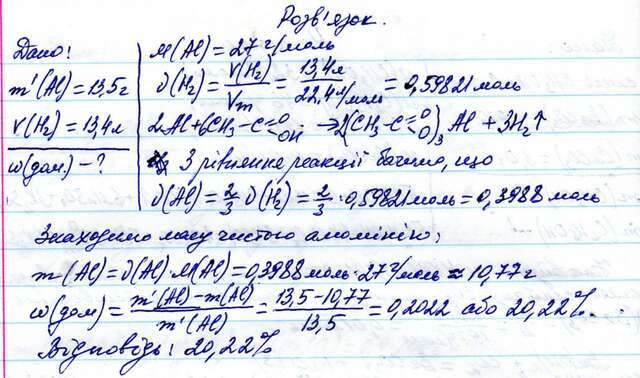 Розв'язок.
Дано:
m'(Al)=13,5г
V(H₂)=13,4л
ω(дом.)-?
M(Al)=27 г/моль
ν(H₂)=V(H₂)/Vm=13,4л/22,4л/моль=0,59821 моль
2Al+6CH₃-C(=O)OH→2(CH₃-C(=O)O)₃Al+3H₂↑
З рівняння реакції бачимо, що
ν(Al)=2/3 ν(H₂)=2/3·0,59821 моль=0,3988 моль
Знаходимо масу чистого алюмінію:
m(Al)=ν(Al)·M(Al)=0,3988 моль·27 г/моль≈10,77г
ω(дом)=m'(Al)-m(Al)/m'(Al)=13,5-10,77/13,5=0,2022 або 20,22%.
Відповідь: 20,22%